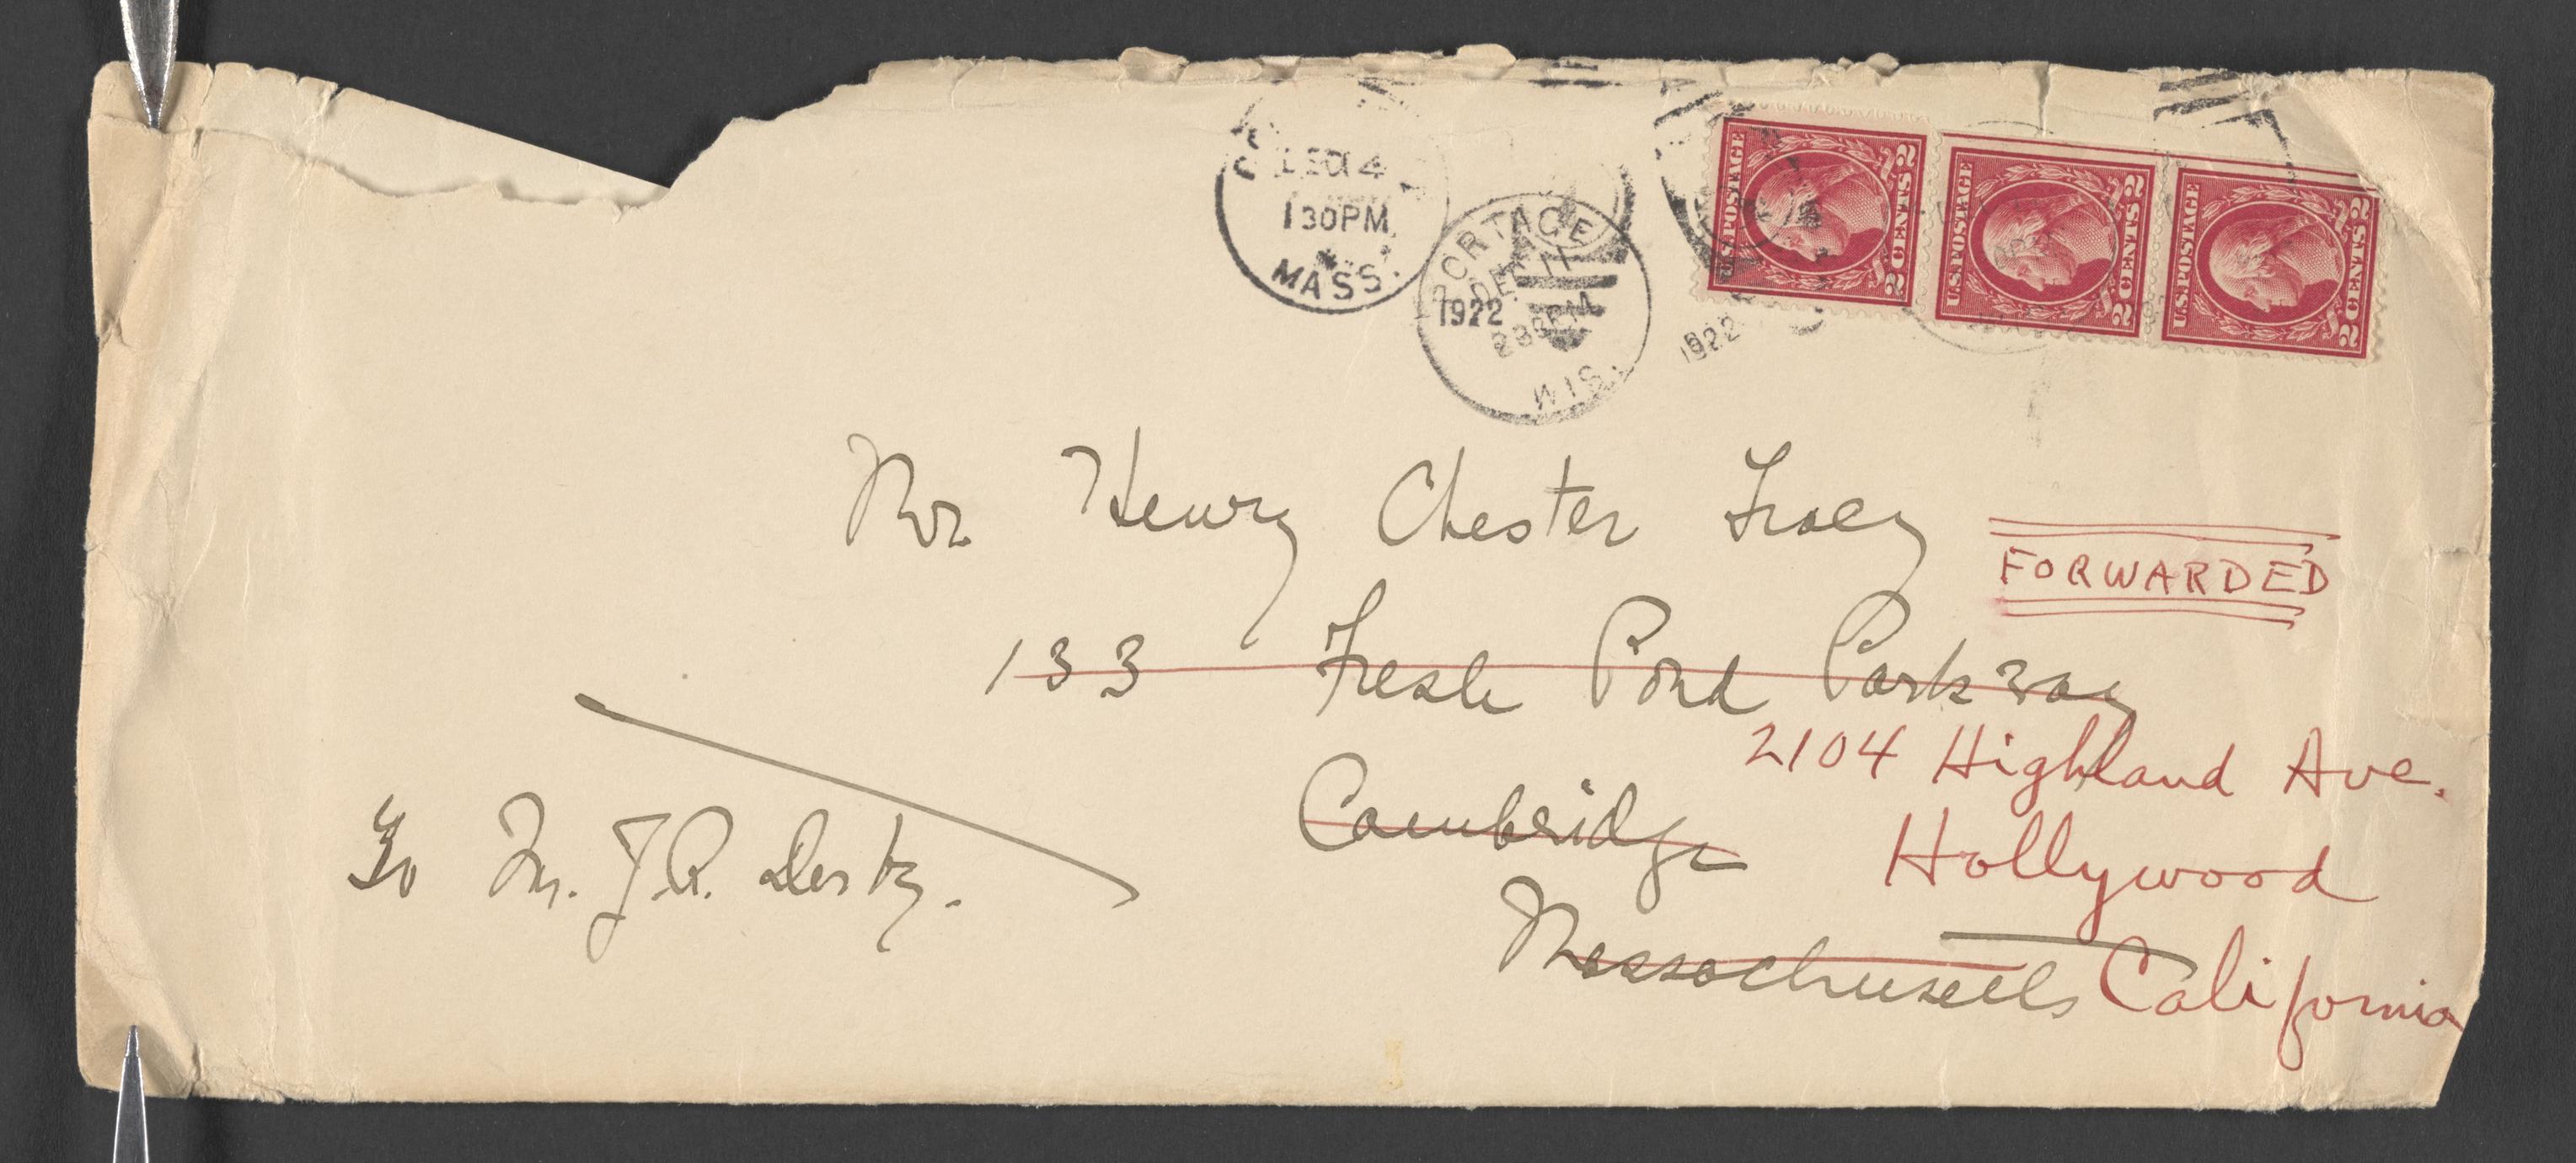 DEC 14
1 30 PM
MASS.
PORTAGE
DEC 11
1922
2 30 PM
WIS.
1922
U.S. POSTAGE
2 CENTS 2
U.S. POSTAGE
2 CENTS 2
U.S. POSTAGE
2 CENTS 2
Mr Henry Chester Tracy
FORWARDED
133 Fresh Pond Parkway
2104 Highland Ave.
Cambridge
Hollywood
Massachusetts
California
J.R.